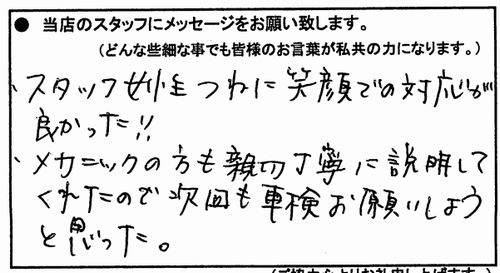 ● 当店のスタッフにメッセージをお願い致します。
(どんな些細な事でも皆様のお言葉が私共の力になります。)
、スタッフ女性つねに笑顔での対応が
良かった!!
・メカニックの方も親切丁寧に説明して
くれたので次回も車検お願いしよう
と思った。